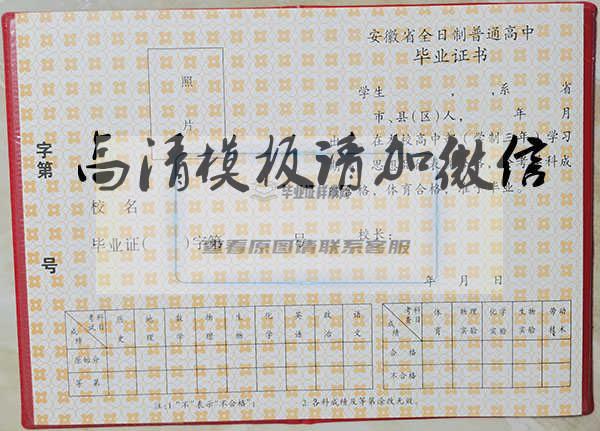 安徽省全日制普通高中
毕业证书
照
片
学生 , ,系 省
市、县(区)人, 年 月
在 校高中 (学制三年)学习
高清模板请加微信
格,体育合格,准予毕业。
毕业证样本网
字第
号
校 名
毕业证( )字第 号
校长:
查看原图请联系客服
年 月 日
考试科目 历史 地理 数学 物理 生物 化学 英语 政治 语文
成绩
原始分
等 第
考查科目 体育 物理实验 化学实验 生物实验 劳动技术
成绩
合 格
不合格
注:1."不"表示"不合格"; 2.各科成绩及等第涂改无效。